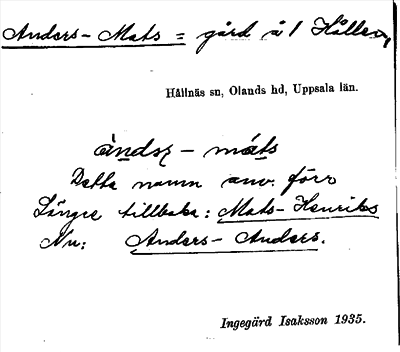 Anders-Mats = gård å 1 Hållen,
Hållnäs sn, Olands hd, Uppsala län.
àndsr - máts
Detta namn anv. förr
Längre tillbaka: Mats-Henriks
Nu: Anders-Anders.
Ingegärd Isaksson 1935.